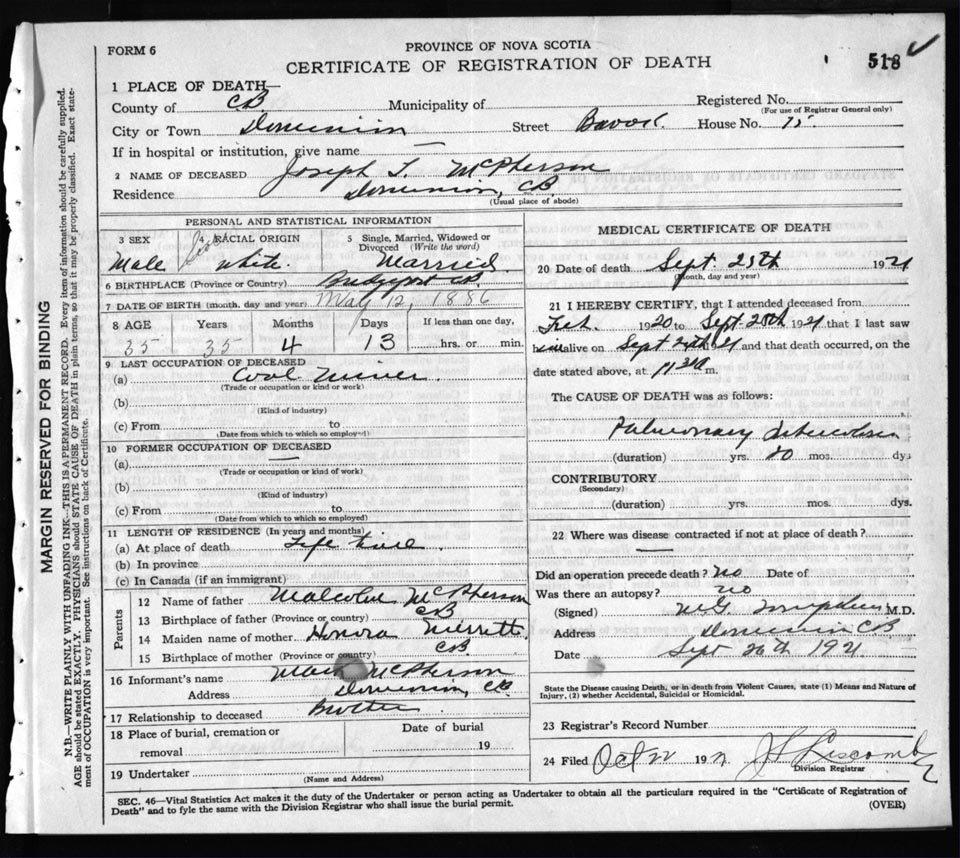 FORM 6
PROVINCE OF NOVA SCOTIA
CERTIFICATE OF REGISTRATION OF DEATH
518
1 PLACE OF DEATH—
County of C.B. Municipality of Registered No.
(For use of Registrar General only)
City or Town Dominion Street House No. 75.
If in hospital or institution, give name —
2 NAME OF DECEASED Joseph McPherson
Residence Dominion, C.B.
(Usual place of abode)
PERSONAL AND STATISTICAL INFORMATION
3 SEX
Male
4 RACIAL ORIGIN
white.
5 Single, Married, Widowed or Divorced (Write the word)
Married
6 BIRTHPLACE (Province or Country) Bridgeport C.B.
7 DATE OF BIRTH (month, day, and year) May 12, 1886
8 AGE Years Months Days If less than one day,
35 35 4 13 hrs. or min.
9 LAST OCCUPATION OF DECEASED
(a) Coal Miner.
(Trade or occupation or kind or work)
(b)
(Kind of industry)
(c) From to
(Date from which to which so employed)
10 FORMER OCCUPATION OF DECEASED
(a) —
(Trade or occupation or kind of work)
(b)
(Kind of industry)
(c) From to
(Date from which to which so employed)
11 LENGTH OF RESIDENCE (In years and months)
(a) At place of death Life time.
(b) In province
(c) In Canada (if an immigrant)
Parents
12 Name of father Malcolm McPherson
13 Birthplace of father (Province or country) CB
14 Maiden name of mother Honora
15 Birthplace of mother (Province or country) CB
16 Informant's name McPherson
Address Dominion, CB.
17 Relationship to deceased Brother
18 Place of burial, cremation or removal
Date of burial
19
19 Undertaker
(Name and Address)
MEDICAL CERTIFICATE OF DEATH
20 Date of death Sept. 25th 1921
(Month, day and year)
21 I HEREBY CERTIFY, that I attended deceased from
Feb. 1920 to Sept 25th 1921 that I last saw
him alive on Sept 24th 1921 and that death occurred, on the
date stated above, at m.
The CAUSE OF DEATH was as follows:
Pulmonary Tuberculosis
(duration) yrs. 20 mos. dys.
CONTRIBUTORY
(Secondary)
(duration) yrs. mos. dys.
22 Where was disease contracted if not at place of death?
—
Did an operation precede death? no Date of
Was there an autopsy? no
(Signed) M.D.
Address Dominion C.B.
Date Sept 26th 1921
State the Disease causing Death, or in death from Violent Causes, state (1) Means and Nature of
Injury, (2) whether Accidental, Suicidal or Homicidal.
23 Registrar's Record Number
24 Filed Oct 1921
Division Registrar
SEC. 46—Vital Statistics Act makes it the duty of the Undertaker or person acting as Undertaker to obtain all the particulars required in the "Certificate of Registration of
Death" and to fyle the same with the Division Registrar who shall issue the burial permit.
(OVER)
MARGIN RESERVED FOR BINDING
N.B.—WRITE PLAINLY WITH UNFADING INK—THIS IS A PERMANENT RECORD. Every item of information should be carefully supplied.
AGE should be stated EXACTLY. PHYSICIANS should STATE CAUSE OF DEATH in plain terms, so that it may be properly classified. Exact state-
ment of OCCUPATION is very important. See instructions on back of Certificate.